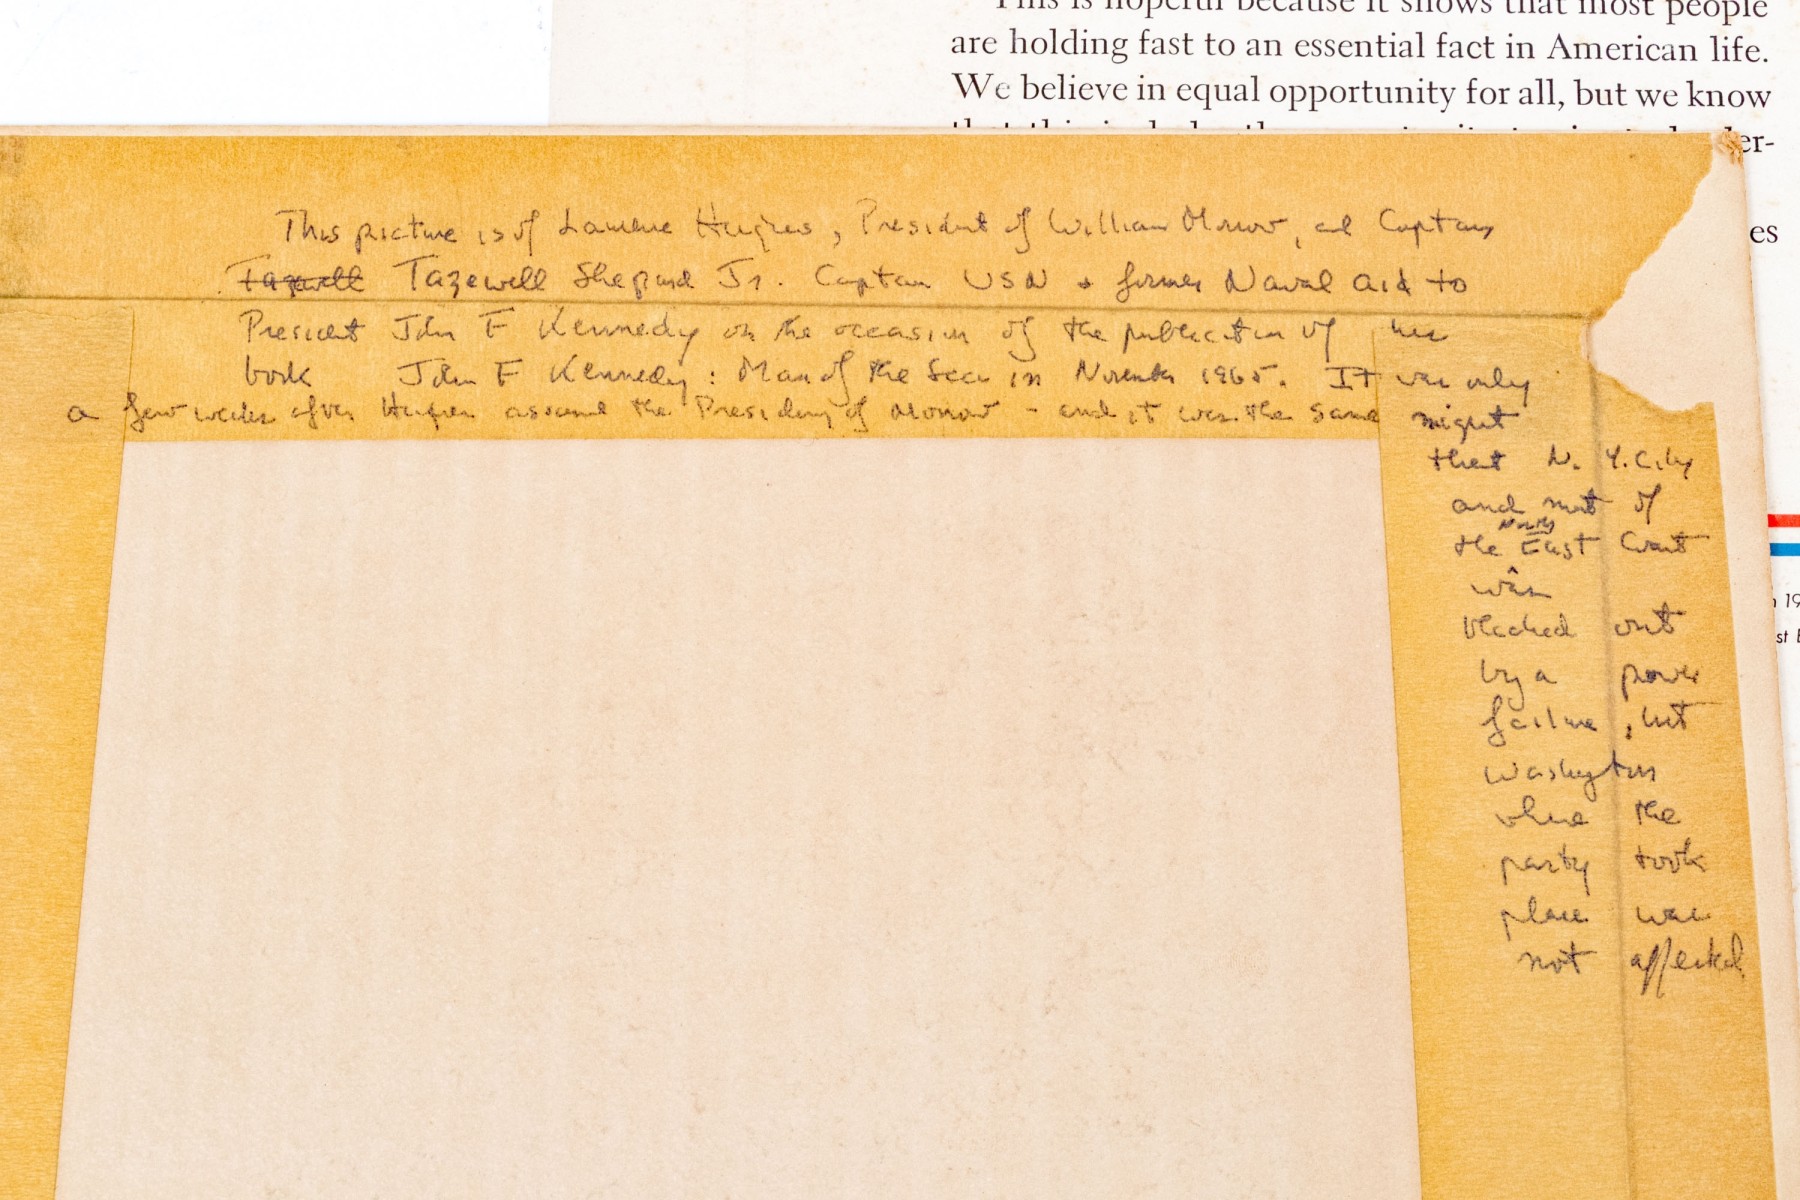 This is hopeful because it shows that most people
are holding fast to an essential fact in American life.
We believe in equal opportunity for all, but we know
er-
es
This picture is of Lawrence Hughes, President of William Morrow, and Captain
Tazewell Tazewell Shepard Jr. Captain USN & former Naval Aid to
President John F Kennedy on the occasion of the publication of his
book John F Kennedy: Man of the Sea in November 1965. It was only
a few weeks after Hughes assumed the Presidency of Morrow - and it was the same night
that N. Y. City
and most of
the North East Coast
was
blacked out
by a power
failure, but
Washington
where the
party took
place was
not affected.
19
st